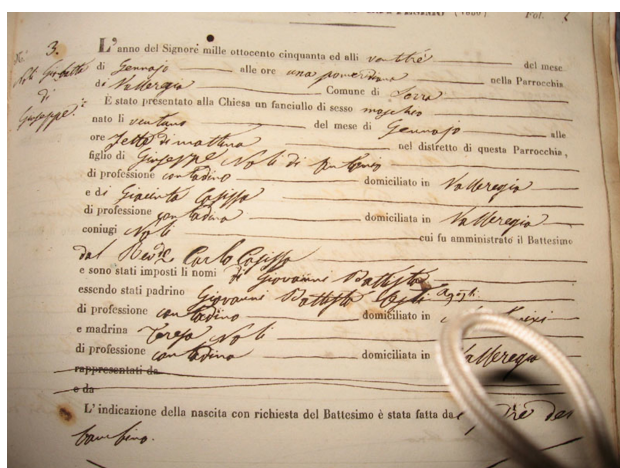 (1850) Fol.
No. 3.
Nobi Gio Batta
di
Giuseppe
L'anno del Signore mille ottocento cinquanta ed alli ventitrè del mese
di Gennajo alle ore una pomeridiana nella Parrocchia
di Valleregia Comune di Serra
È stato presentato alla Chiesa un fanciullo di sesso maschio
nato li ventuno del mese di Gennajo alle
ore sette di mattina nel distretto di questa Parrocchia,
figlio di Giuseppe Nobi di Antonio
di professione contadino domiciliato in Valleregia
e di Giacinta Cosissa
di professione contadina domiciliata in Valleregia
coniugi Nobi cui fu amministrato il Battesimo
dal Revdo. Carlo
e sono stati imposti li nomi di Giovanni Battista
essendo stati padrino Giovanni Battista
di professione contadino domiciliato in
e madrina Teresa Nobi
di professione contadina domiciliata in Valleregia
rappresentati da
e da
L'indicazione della nascita con richiesta del Battesimo è stata fatta dal Padre del
bambino.